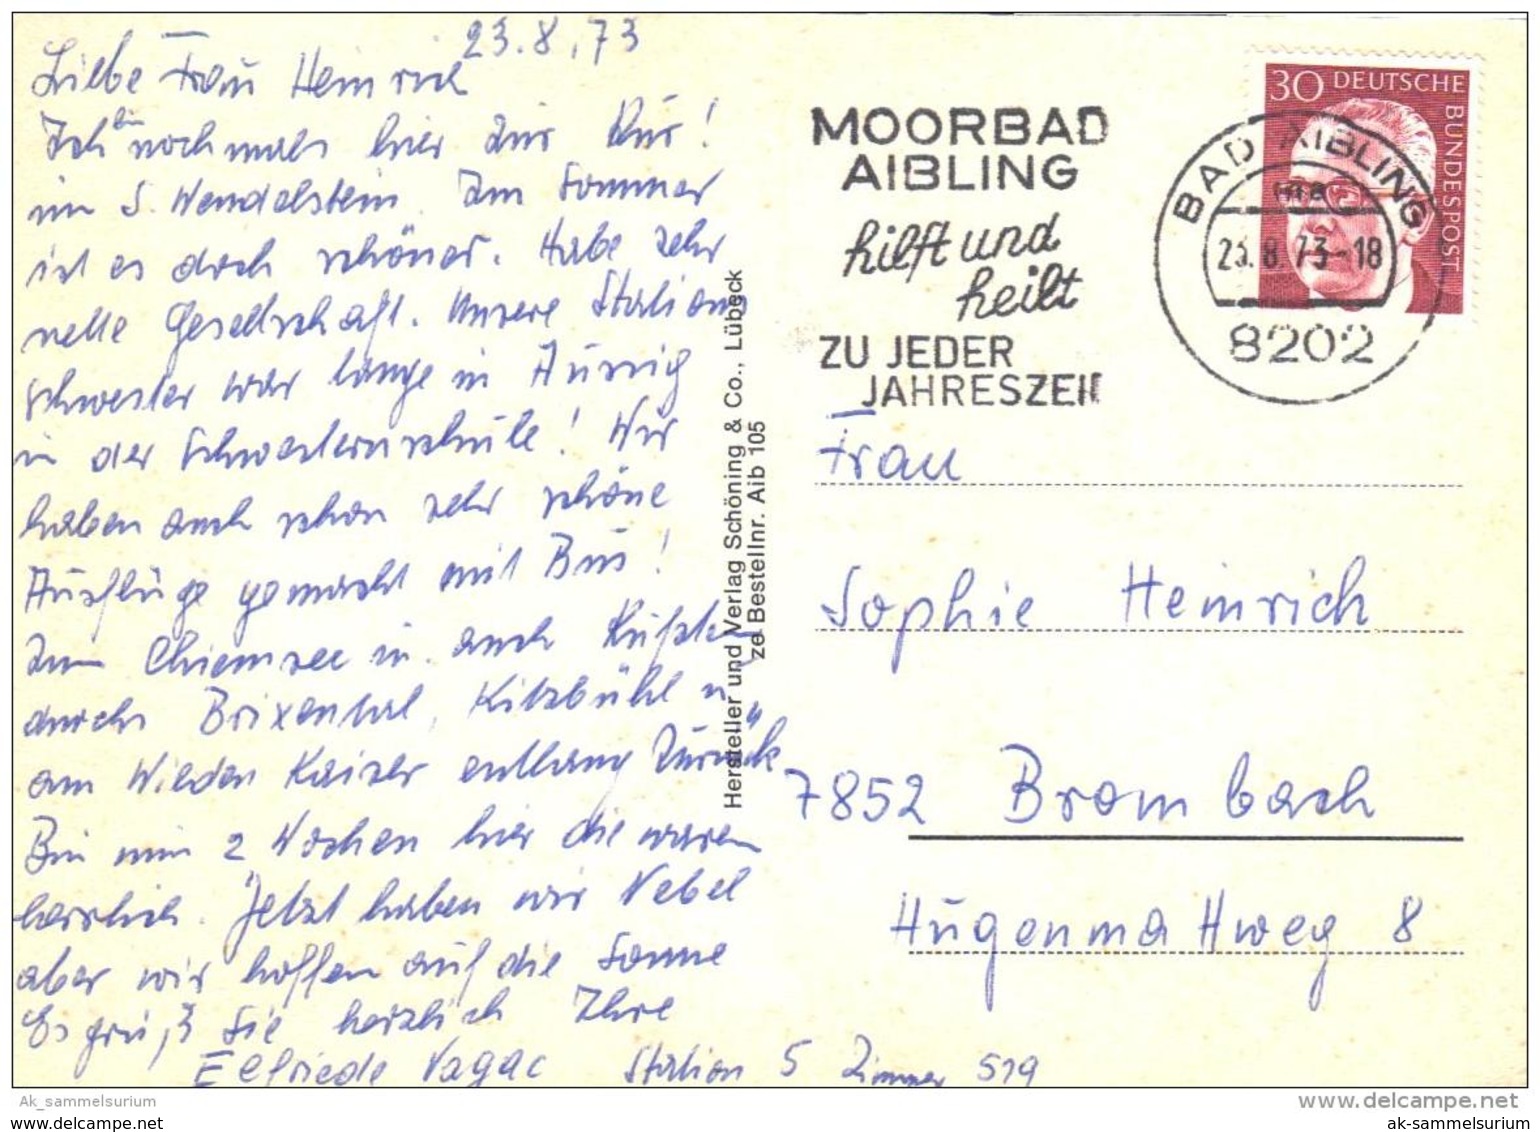 23.8.73
Liebe Frau Heinrich
Ich bin nochmals hier zur Kur!
im S. Wendelstein. Im Sommer
ist es doch schöner. Habe sehr
nette Gesellschaft. Unsere Stations
schwester war lange in
in der Schwesternschule! Wir
haben auch schon sehr schöne
Ausflüge gemacht mit Bus!
Zum Chiemsee u. auch Kufstein
durchs Brixental, Kitzbühel u.
am Wilden Kaiser entlang zurück
Bin nun 2 Wochen hier die waren
herrlich. Jetzt haben wir Nebel
aber wir hoffen auf die Sonne
Es grüßt Sie herzlich Ihre
Elfriede Vagac Station 5 Zimmer 519
Hersteller und Verlag Schöning & Co., Lübeck
ze Bestellnr. Aib 105
MOORBAD
AIBLING
hilft und
heilt
ZU JEDER
JAHRESZEIT
30 DEUTSCHE
BUNDESPOST
BAD AIBLING
23.8.73-18
8202
Frau
Sophie Heinrich
7852 Brombach
Hugenmattweg 8
Ak_sammelsurium
www.delcampe.net
www.delcampe.net
ak-sammelsurium